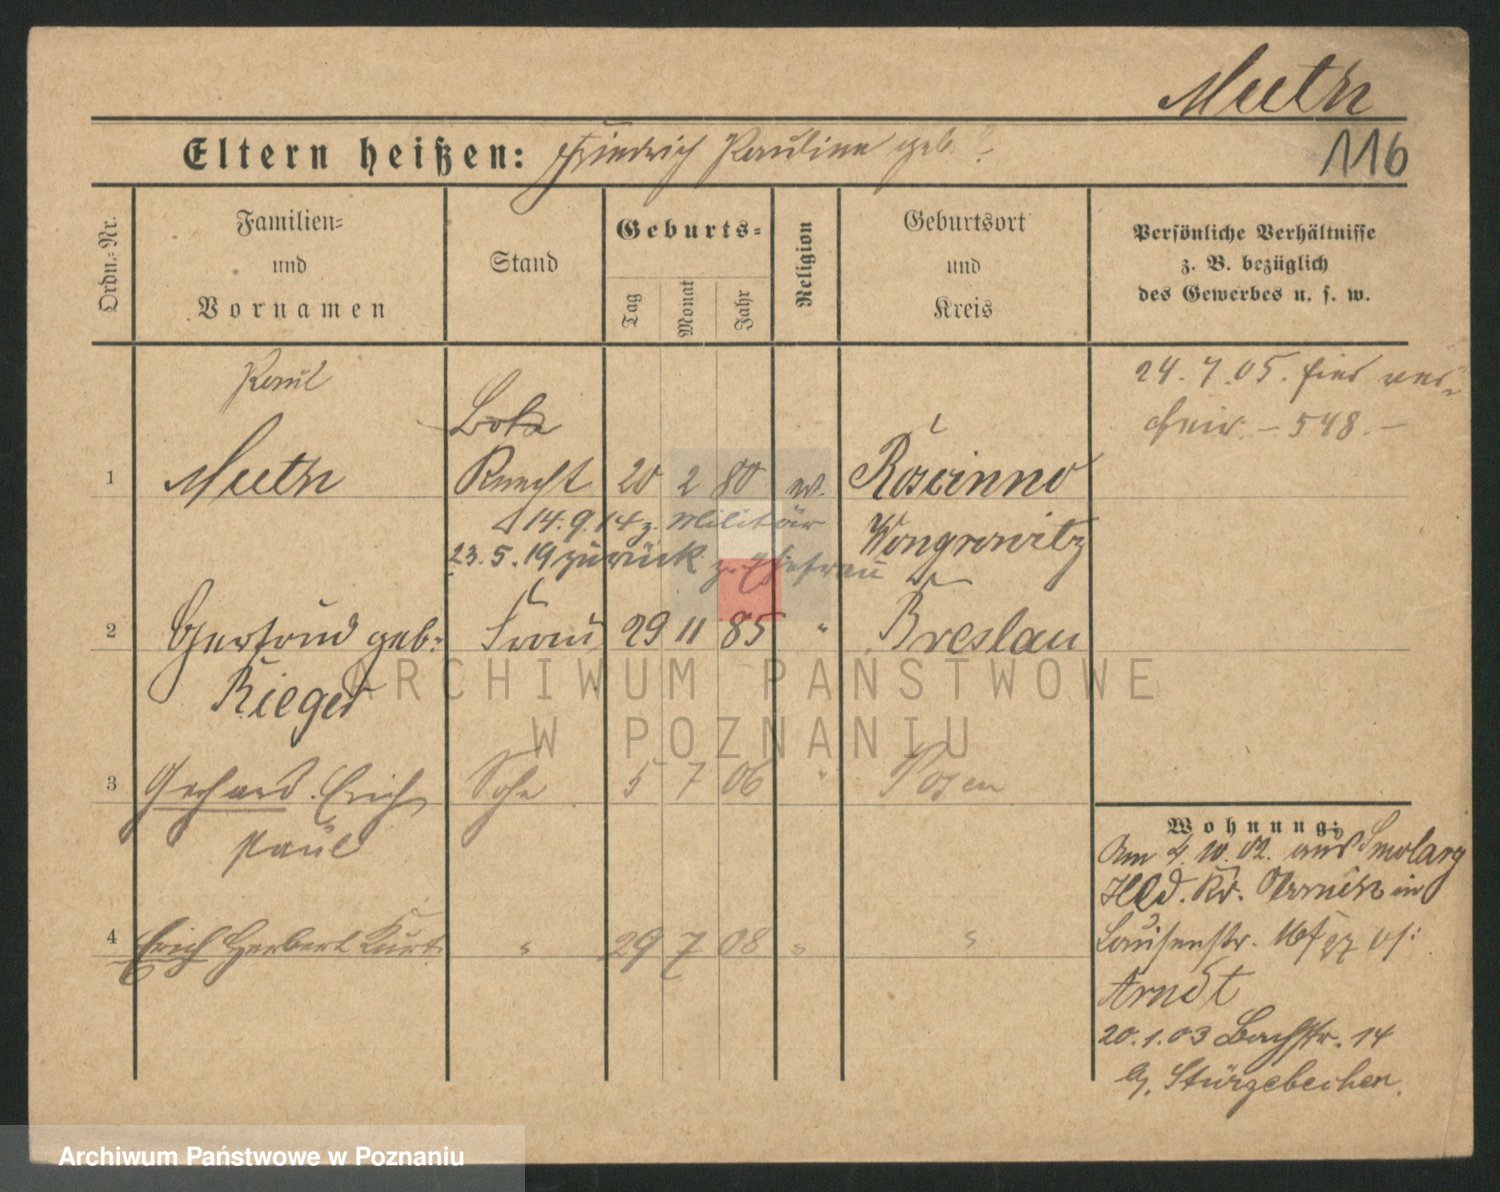 Muth
116
Eltern heißen: Friedrich Pauline geb. ?
Ordn.-Nr.
Familien-
und
Vornamen
Stand
Geburts-
Tag
Monat
Jahr
Religion
Geburtsort
und
Kreis
Persönliche Verhältnisse
z. B. bezüglich
des Gewerbes u. s. w.
Paul
24. 7. 05. hier
548. –
1 Muth Knecht 20 2 80
14. 9. 14 z. Militär
Wongrowitz
23. 5. 19 zurück z. Ehefrau
2 Gertrud geb. Frau 29 11 85 " Breslau
Rieger
ARCHIWUM PAŃSTWOWE
W POZNANIU
3 Gerhard Erich Sohn 5 7 06 " Posen
Paul
4 Erich Herbert Kurt " 29 7 08 " "
Wohnung:
Am 4. 10. 02. aus Smolarg
Hld. Kr. Obornik in
Louisenstr. 16
Arndt
20. 1. 03 Bachstr. 14
b. Stürzebecher.
Archiwum Państwowe w Poznaniu